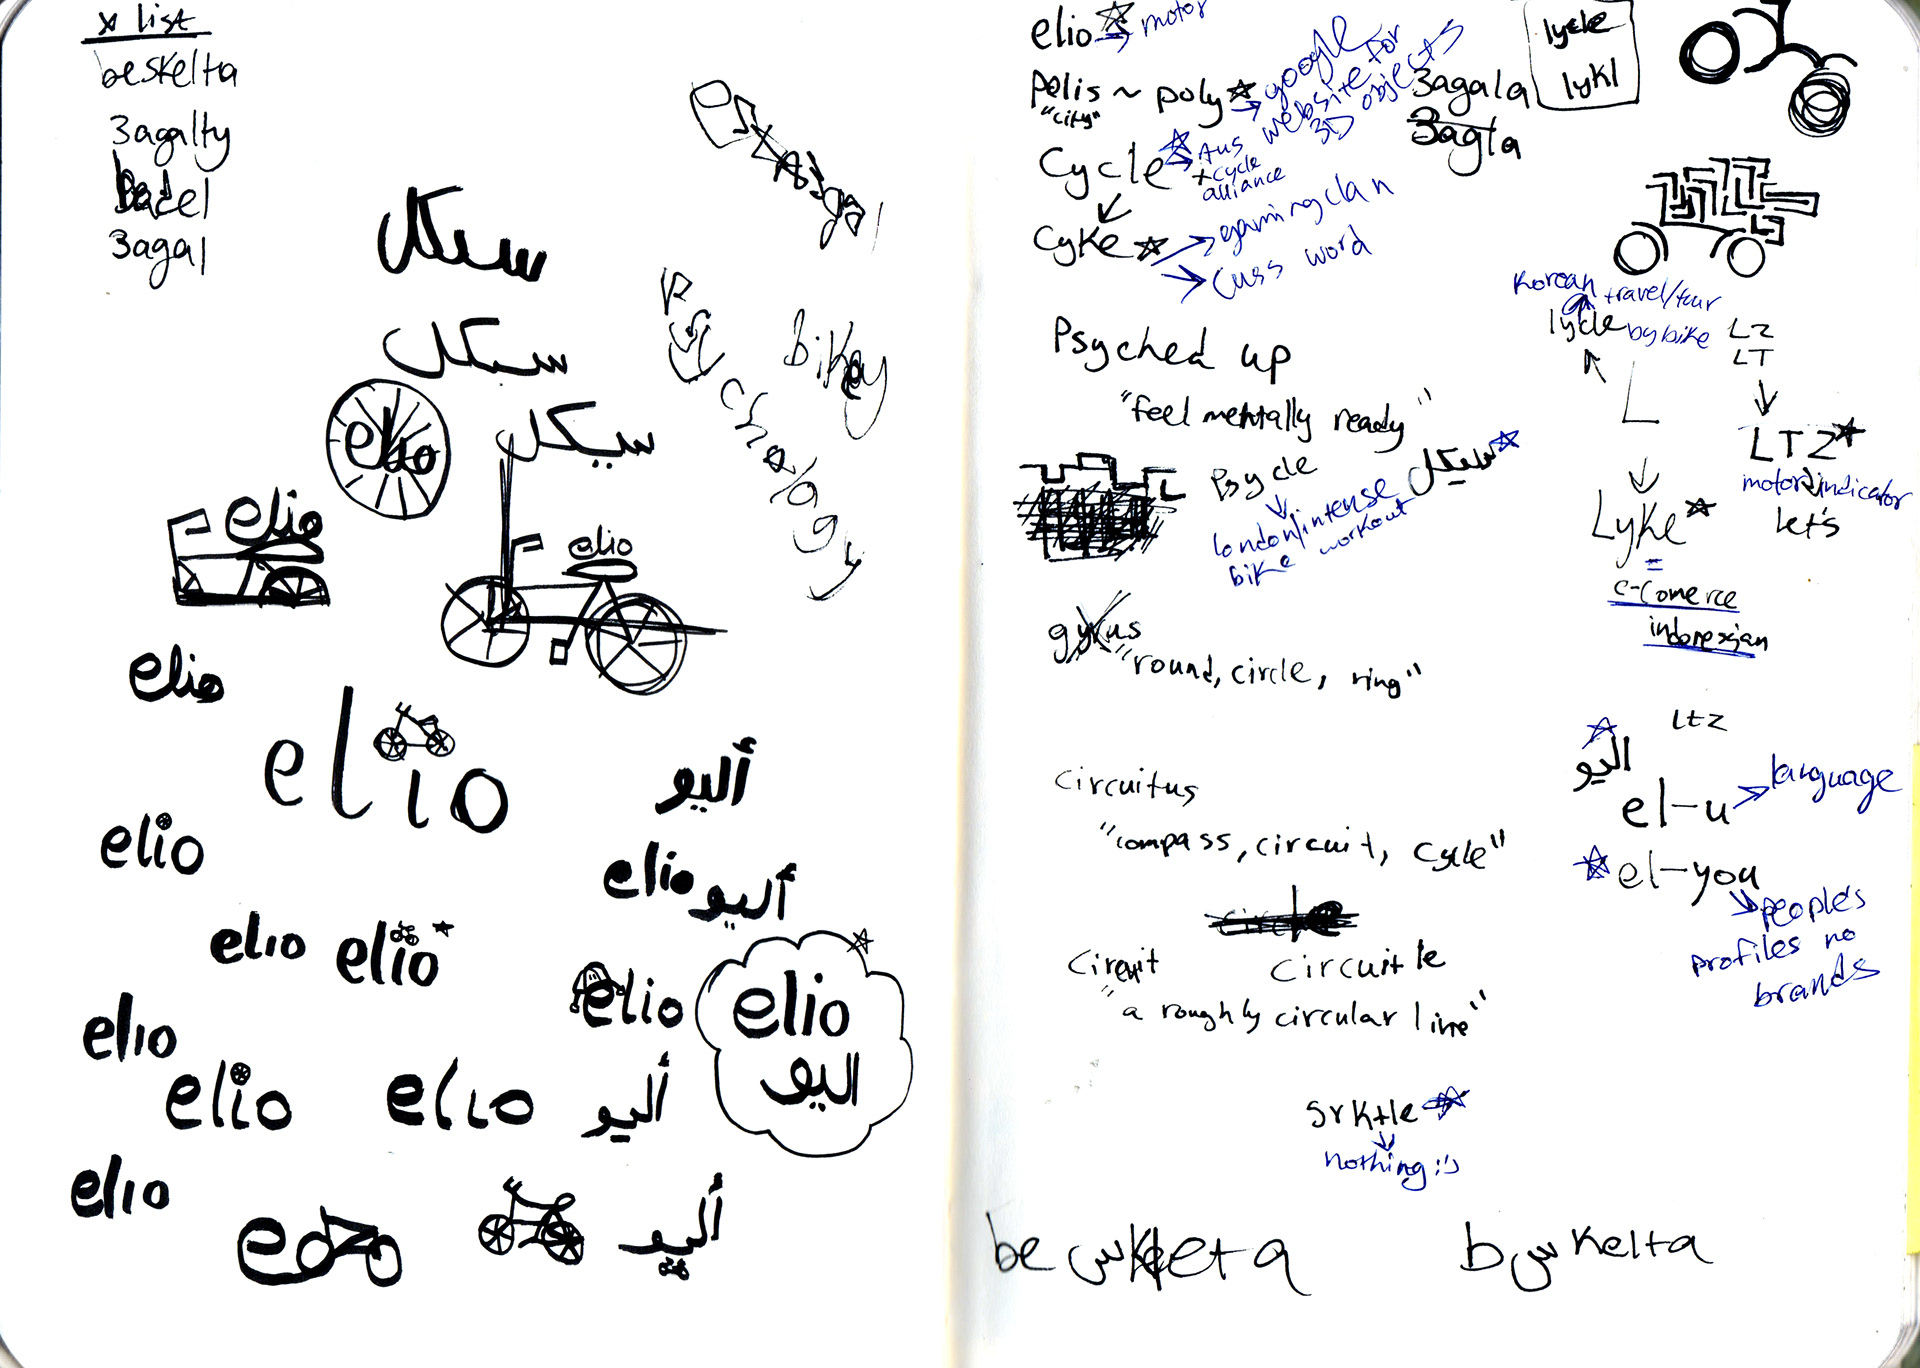 x list
beskelta
3agalty
3agal
سيكل
bikey
سيكل
psychology
elio
سيكل
elio
elio
elio
elio
أليو
elio
elio
أليو
elio
elio
elio
elio
اليو
elio
elio
elio
أليو
elio
أليو
elio → motor
polis ~ poly → google website for 3D objects
"city"
3agala
3agla
lycle
lykl
Cycle → Aus
+ cycle
alliance
Cyke → gaming clan
→ cuss word
Korean travel/tour
lycle by bike
LZ
LT
L
LTZ
motor indicator
let's
Lyke
=
e-comerce
indonesian
Psyched up
"feel mentally ready"
Psycle
سيكل
london/intense
bike workout
gyrus
"round, circle, ring"
Ltz
اليو
el-u → language
el-you
people's
profiles no
brands
circuitus
"compass, circuit, cycle"
Circuit
Circuitle
"a roughly circular line"
Srktle
nothing :')
be س keta
b س kelta